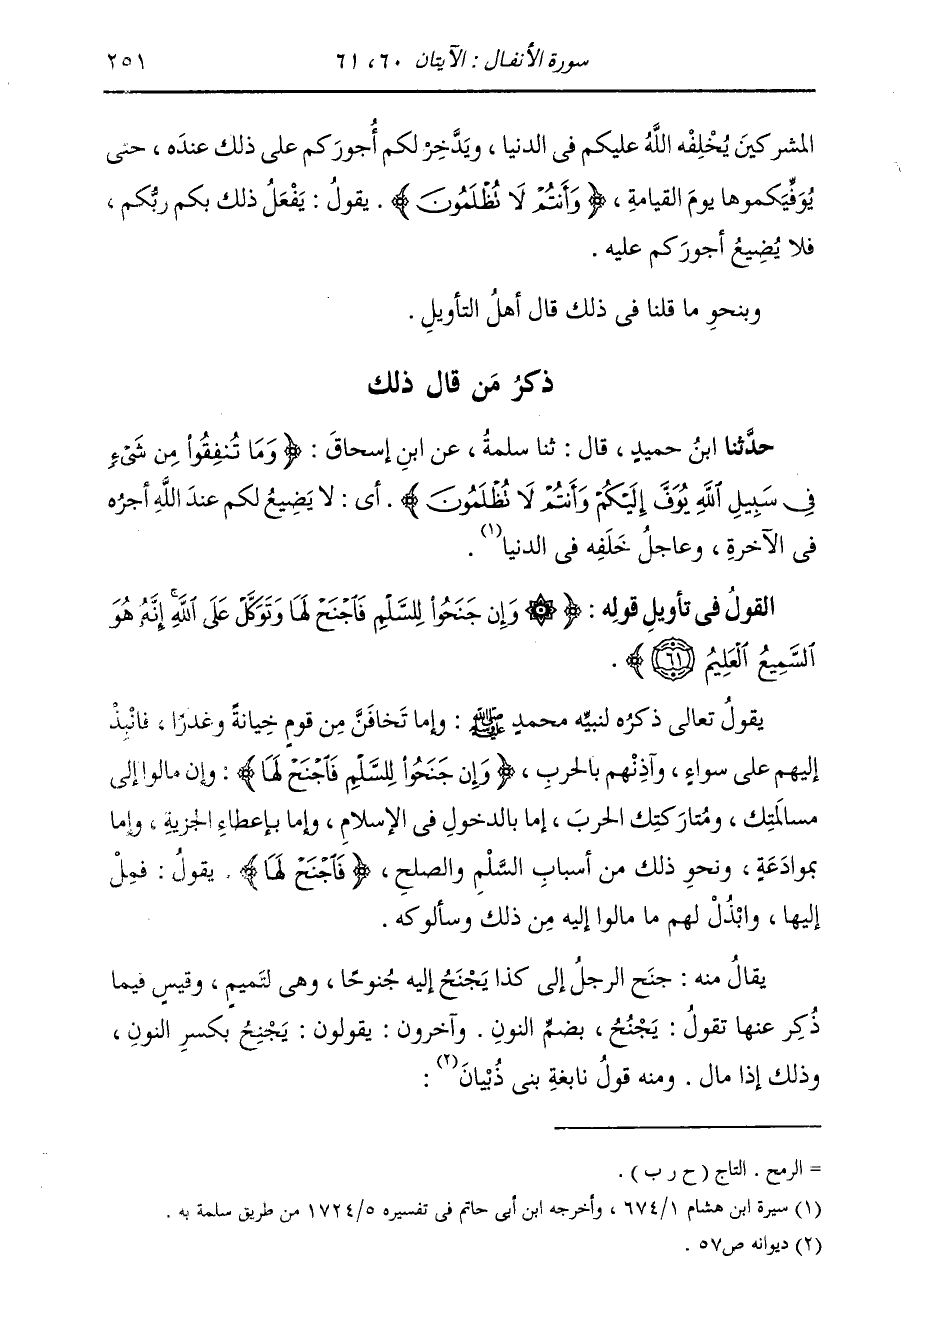 سورة الأنفال : الآيتان ٦٠، ٦١ ٢٥١
المشركينَ يُخْلِفْه اللَّهُ عليكم فى الدنيا ، ويَدَّخِرْ لكم أُجورَكم على ذلك عندَه ، حتى
يُوَفِّيَكموها يومَ القيامةِ ، ﴿ وَأَنتُمْ لَا تُظْلَمُونَ ﴾ . يقولُ : يَفْعَلُ ذلك بكم ربُّكم ،
فلا يُضِيعُ أجورَكم عليه .
وبنحوِ ما قلنا فى ذلك قال أهلُ التأويلِ .
ذكرُ مَن قال ذلك
حدَّثنا ابنُ حميدٍ ، قال : ثنا سلمةُ ، عن ابنِ إسحاقَ : ﴿ وَمَا تُنفِقُوا۟ مِن شَىْءٍ
فِى سَبِيلِ ٱللَّهِ يُوَفَّ إِلَيْكُمْ وَأَنتُمْ لَا تُظْلَمُونَ ﴾ . أى : لا يَضِيعُ لكم عندَ اللَّهِ أجرُه
فى الآخرةِ ، وعاجلُ خَلَفِه فى الدنيا(١) .
القولُ فى تأويلِ قولِه : ﴿ ۞ وَإِن جَنَحُوا۟ لِلسَّلْمِ فَٱجْنَحْ لَهَا وَتَوَكَّلْ عَلَى ٱللَّهِۚ إِنَّهُۥ هُوَ
ٱلسَّمِيعُ ٱلْعَلِيمُ (٦١) ﴾ .
يقولُ تعالى ذكرُه لنبيِّه محمدٍ ﷺ : وإما تَخافَنَّ مِن قومٍ خِيانةً وغدرًا ، فانْبِذْ
إليهم على سواءٍ ، وآذِنْهم بالحربِ ، ﴿ وَإِن جَنَحُوا۟ لِلسَّلْمِ فَٱجْنَحْ لَهَا ﴾ : وإن مالوا إلى
مسالَمتِك ، ومُتارَكتِك الحربَ ، إما بالدخولِ فى الإسلامِ ، وإما بإعطاءِ الجزيةِ ، وإما
بموادَعَةٍ ، ونحوِ ذلك من أسبابِ السَّلْمِ والصلحِ ، ﴿ فَٱجْنَحْ لَهَا ﴾ . يقولُ : فمِلْ
إليها ، وابْذُلْ لهم ما مالوا إليه مِن ذلك وسألوكه .
يقالُ منه : جنَح الرجلُ إلى كذا يَجْنَحُ إليه جُنوحًا ، وهى لتَميمٍ ، وقيسٍ فيما
ذُكِر عنها تقولُ : يَجْنُحُ ، بضمِّ النونِ . وآخرون : يقولون : يَجْنِحُ بكسرِ النونِ ،
وذلك إذا مال . ومنه قولُ نابغةِ بنى ذُبْيانَ(٢) :
= الرمح . التاج ( ح ر ب ) .
(١) سيرة ابن هشام ٦٧٤/١ ، وأخرجه ابن أبى حاتم فى تفسيره ١٧٢٤/٥ من طريق سلمة به .
(٢) ديوانه ص٥٧ .